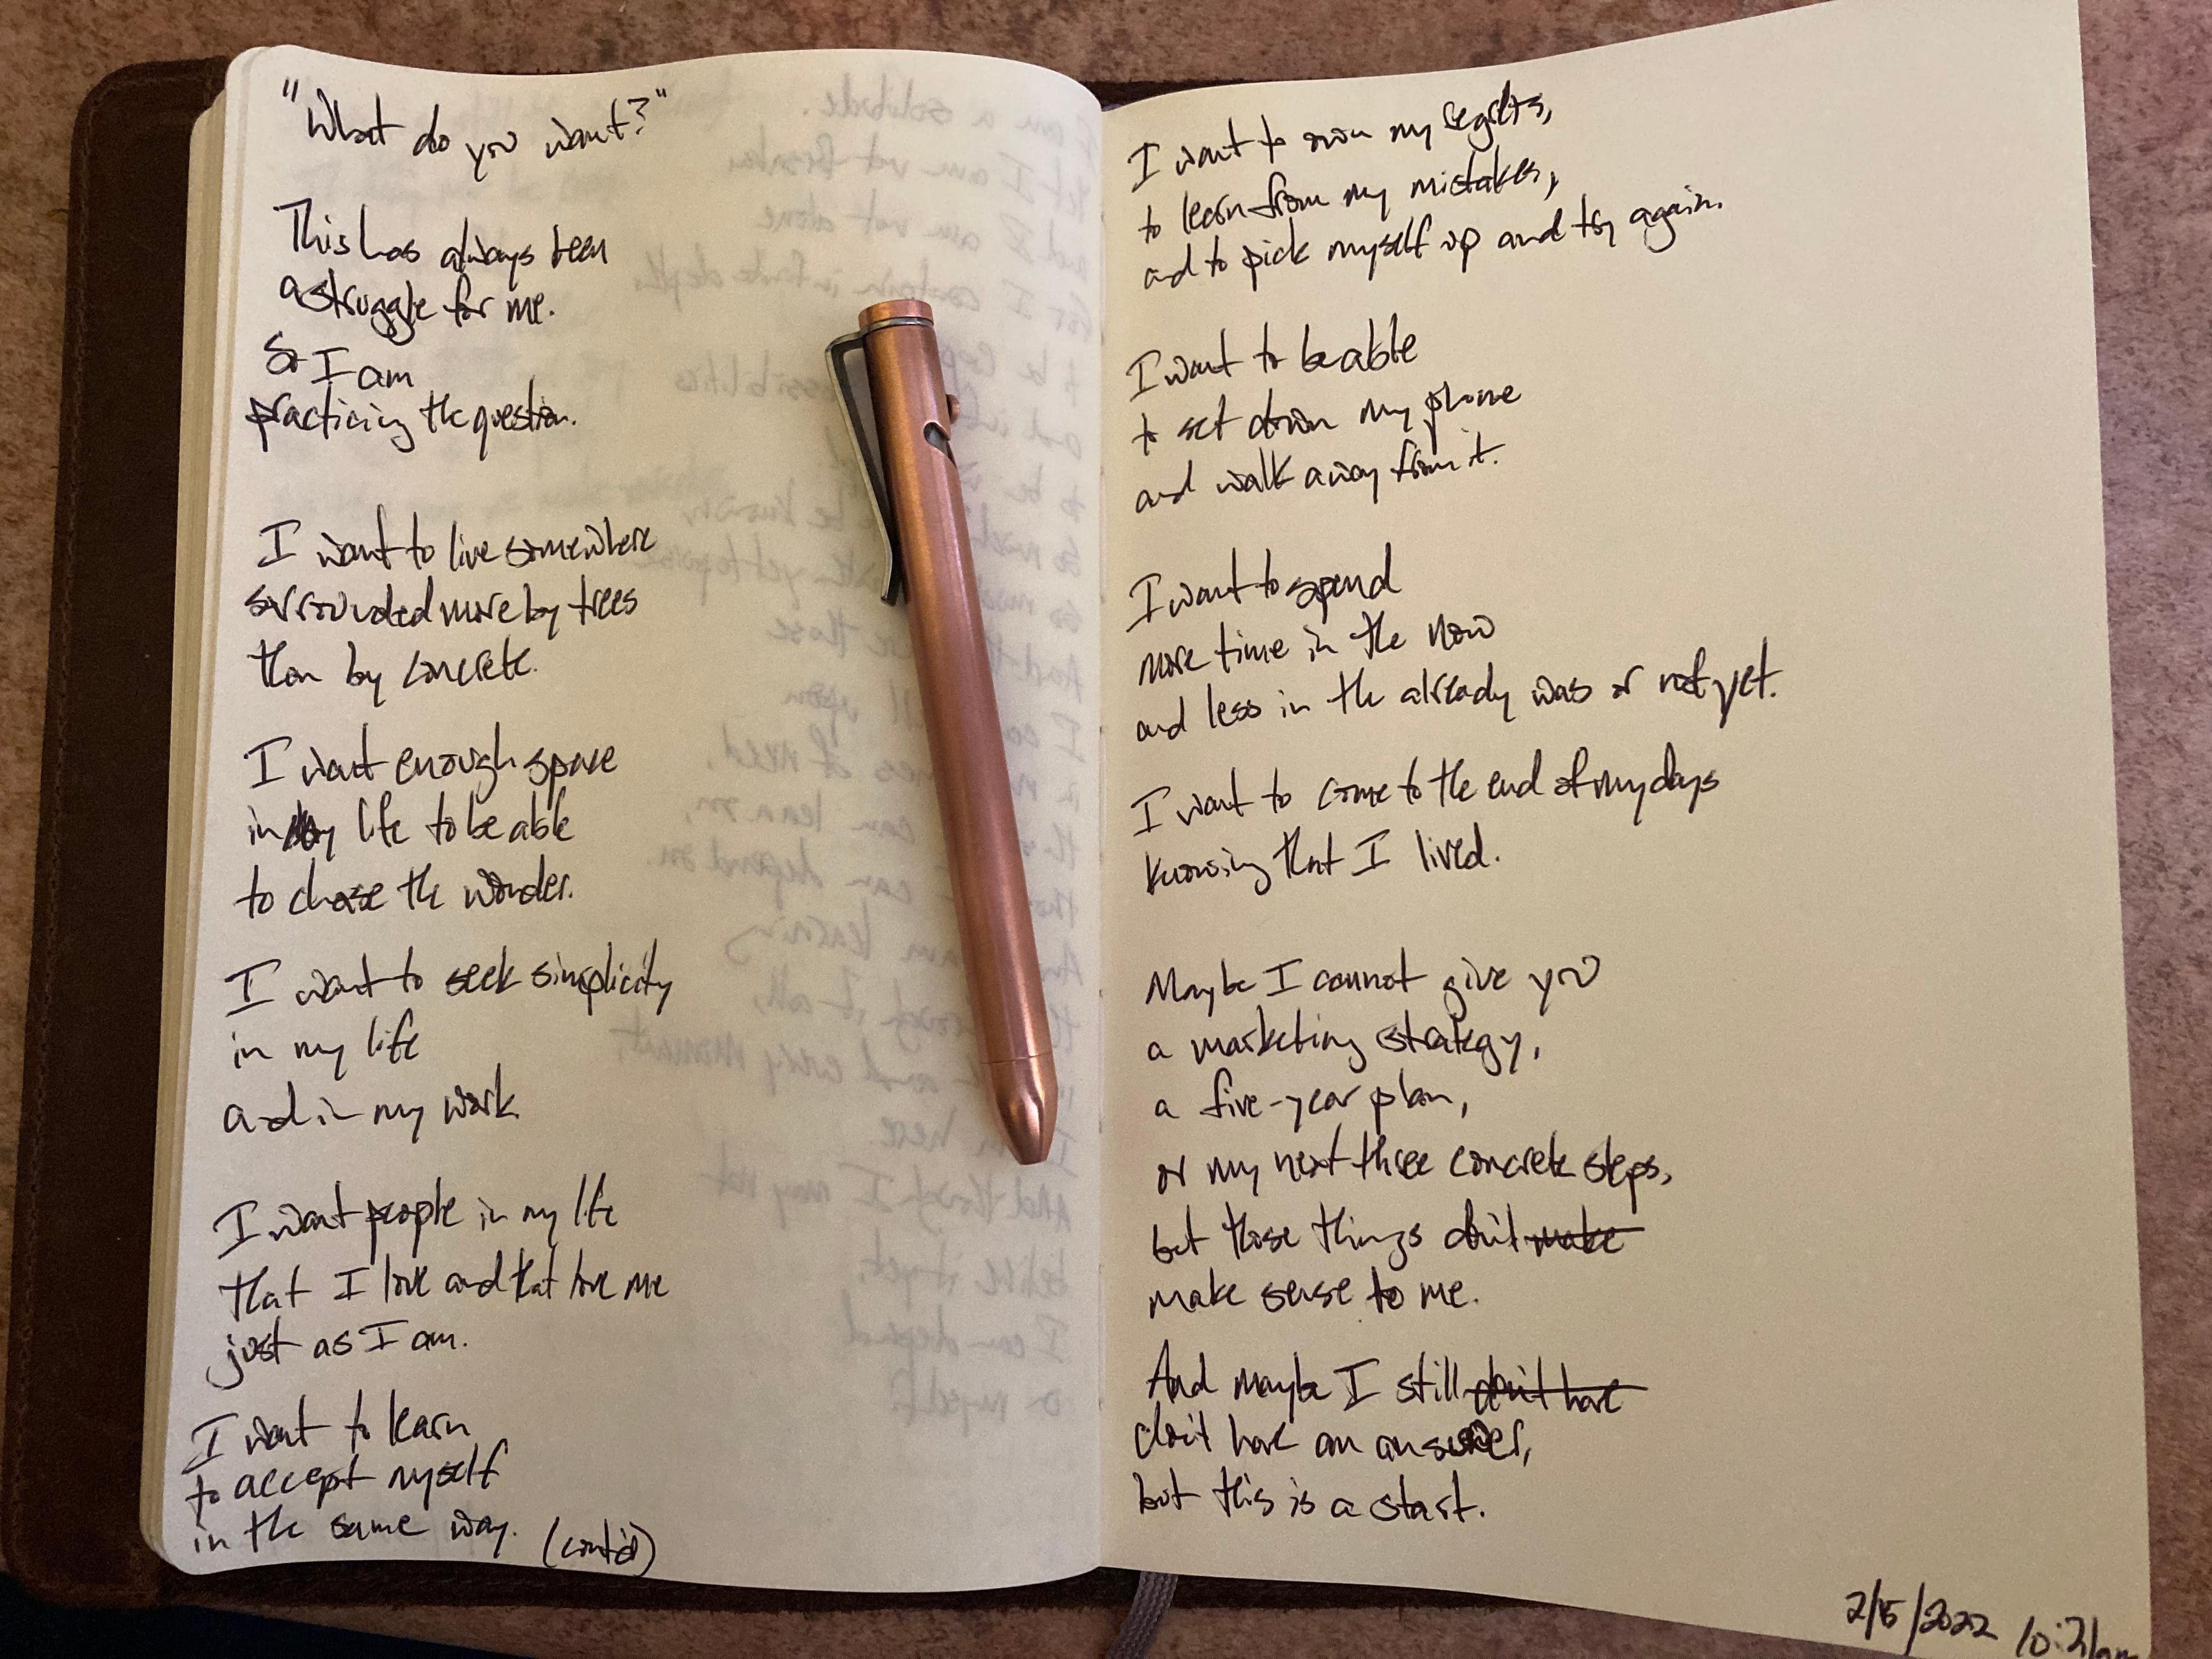 "What do you want?"
This has always been
a struggle for me.
So I am
practicing the question.
I want to live somewhere
surrounded more by trees
than by concrete.
I want enough space
in my life to be able
to chase the wonder.
I want to seek simplicity
in my life
and in my work
I want people in my life
that I love and that love me
just as I am.
I want to learn
to accept myself
in the same way.
(cont'd)
I want to own my regrets,
to learn from my mistakes,
and to pick myself up and try again.
I want to be able
to set down my phone
and walk away from it.
I want to spend
more time in the now
and less in the already was or not yet.
I want to come to the end of my days
knowing that I lived.
Maybe I cannot give you
a marketing strategy,
a five-year plan,
or my next three concrete steps,
but those things don't make
make sense to me.
And maybe I still don't have
don't have an answer,
but this is a start.
2/15/2022 10:21am